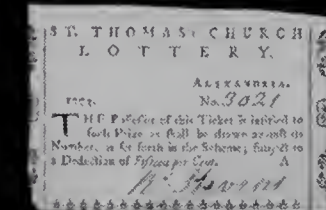 ST. THOMAS' CHURCH
LOTTERY.
ALEXANDRIA.
No. 3021
THE Possessor of this Ticket is intitled to
such Prize as shall be drawn against its
Number, as set forth in the Scheme; subject to
a Deduction of Fifteen per Cent. A